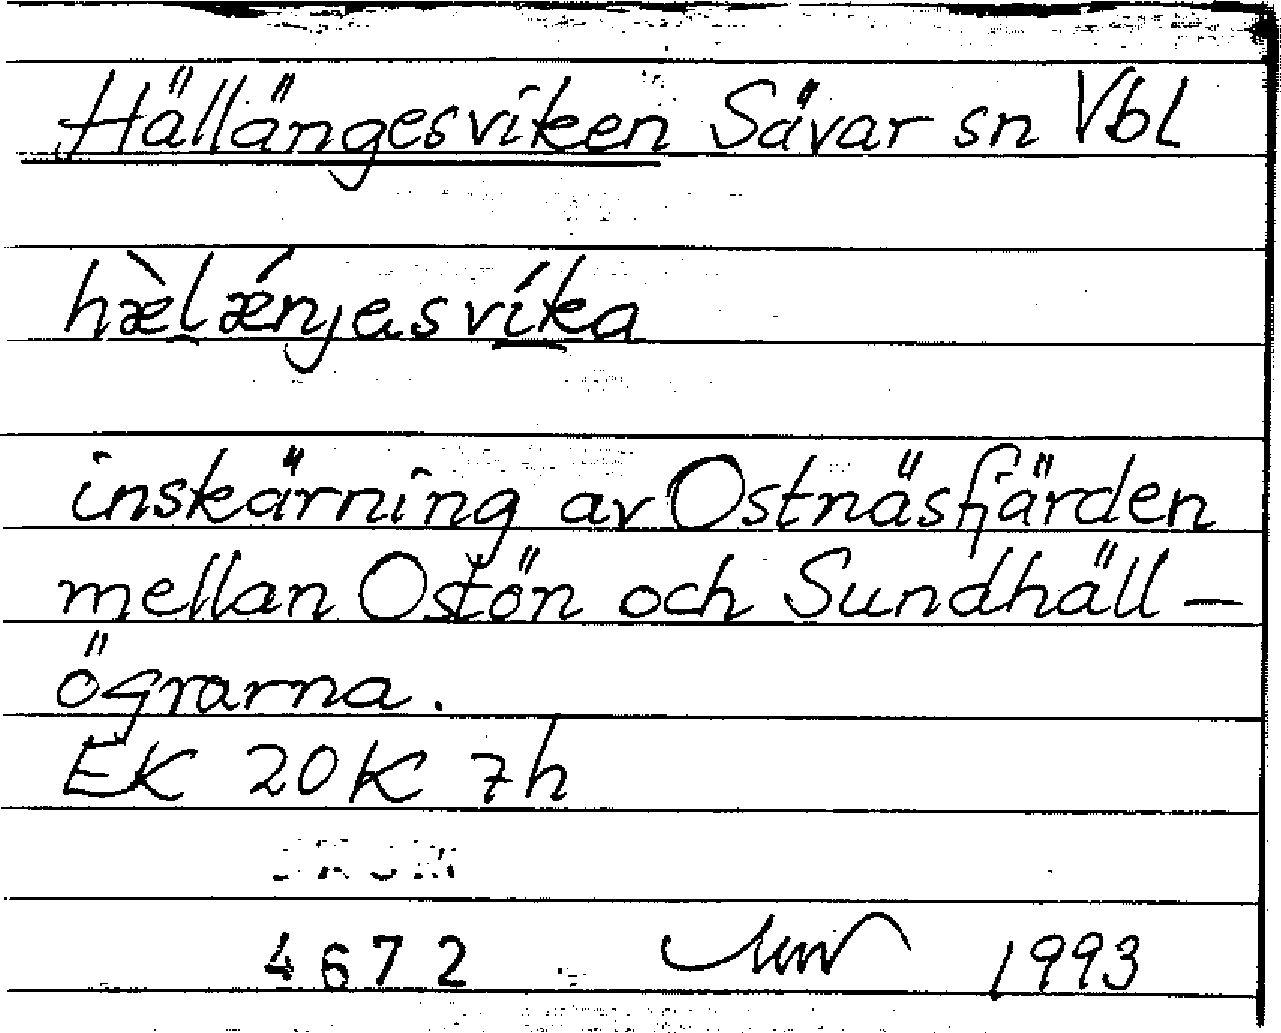 Hällängesviken Sävar sn Vbl
hæ̀lǽnjesvíka
inskärning av Ostnäsfjärden
mellan Ostön och Sundhäll–
ögrarna.
EK 20K 7h
4672 1993